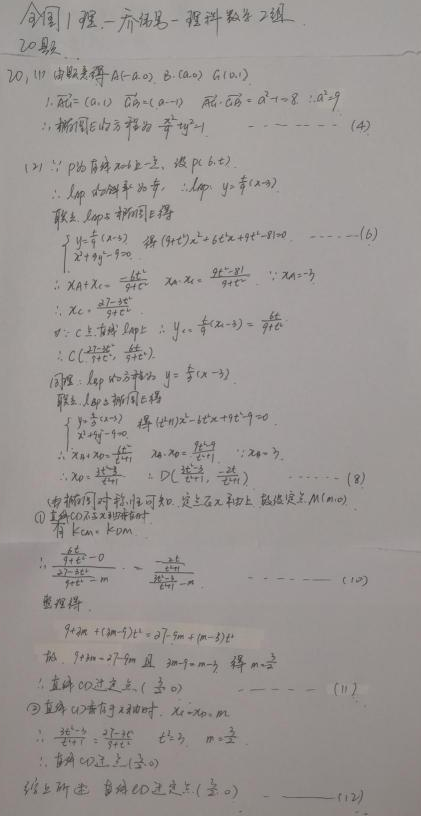 全国1理-乔伟昌-理科数学2组
20题
20, (1) 由题意得 A(-a,0), B.(a,0) G(0.1)
∴ AG=(a,1) GB=(a,-1) AG·GB=a²-1=8 ∴a²=9
∴椭圆E的方程为 x²/9+y²=1 ------- (4)
(2) ∵ P为直线x=6上一点, 设P(6,t)
∴ lAP的斜率为t/9, ∴lAP: y=t/9(x-3)
联立lAP与椭圆E得
{y=t/9(x-3) x²+9y²-9=0 得(9+t²)x²+6t²x+9t²-81=0 ------(6)
∴ xA+xC=-6t²/9+t² xA·xC=9t²-81/9+t² ∵xA=-3
∴ xC=27-3t²/9+t²
又∵C点在直线lAP上 ∴ yC=t/9(xC-3)=6t/9+t²
∴C(27-3t²/9+t², 6t/9+t²)
同理: lBP的方程为 y=t/3(x-3)
联立lBP与椭圆E得
{y=t/3(x-3) x²+9y²-9=0 得(t²+1)x²-6t²x+9t²-9=0
∴ xB+xD=6t²/t²+1 xB·xD=9t²-9/t²+1 ∵xB=3
∴xD=3t²-3/t²+1 ∴ D(3t²-3/t²+1, -2t/t²+1) ------ (8)
(由椭圆对称性可知, 定点在x轴上, 故设定点M(m,0)
①直线CD不与x轴垂直时
有 kCM=kDM
∴ (6t/9+t² -0)/(27-3t²/9+t² -m) = (-2t/t²+1)/(3t²-3/t²+1 -m) ------- (10)
整理得
9+3m+(3m-9)t²=27-9m+(m-3)t²
故 9+3m=27-9m 且 3m-9=m-3 得m=3/2
∴直线CD过定点(3/2,0) ------ (11)
②直线CD垂直于x轴时, xC=xD=m
∴ 3t²-3/t²+1=27-3t²/9+t² t²=3 m=3/2
∴直线CD过点(3/2,0)
综上所述 直线CD过定点(3/2,0) ------ (12)